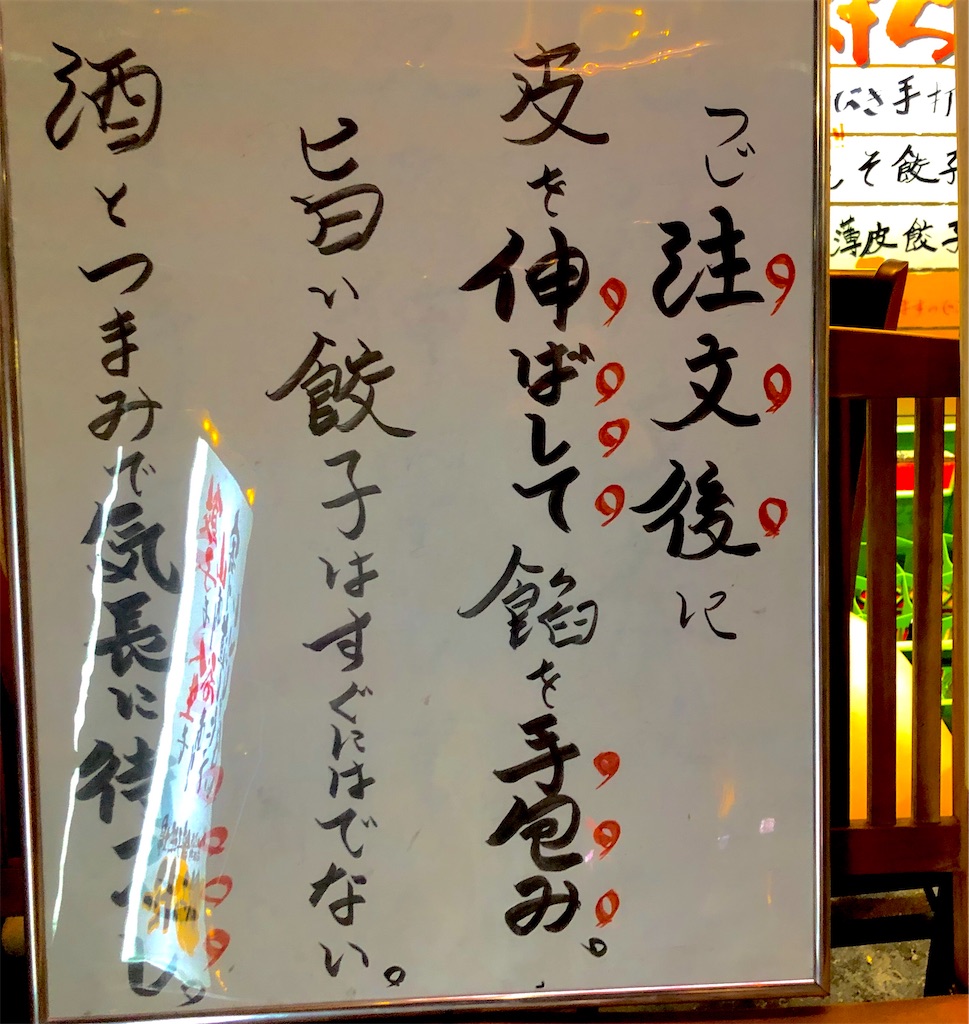 つど注文後に
皮を伸ばして餡を手包み。
旨い餃子はすぐにはでない。
酒とつまみで気長に待つべし。
しそ餃子
薄皮餃子